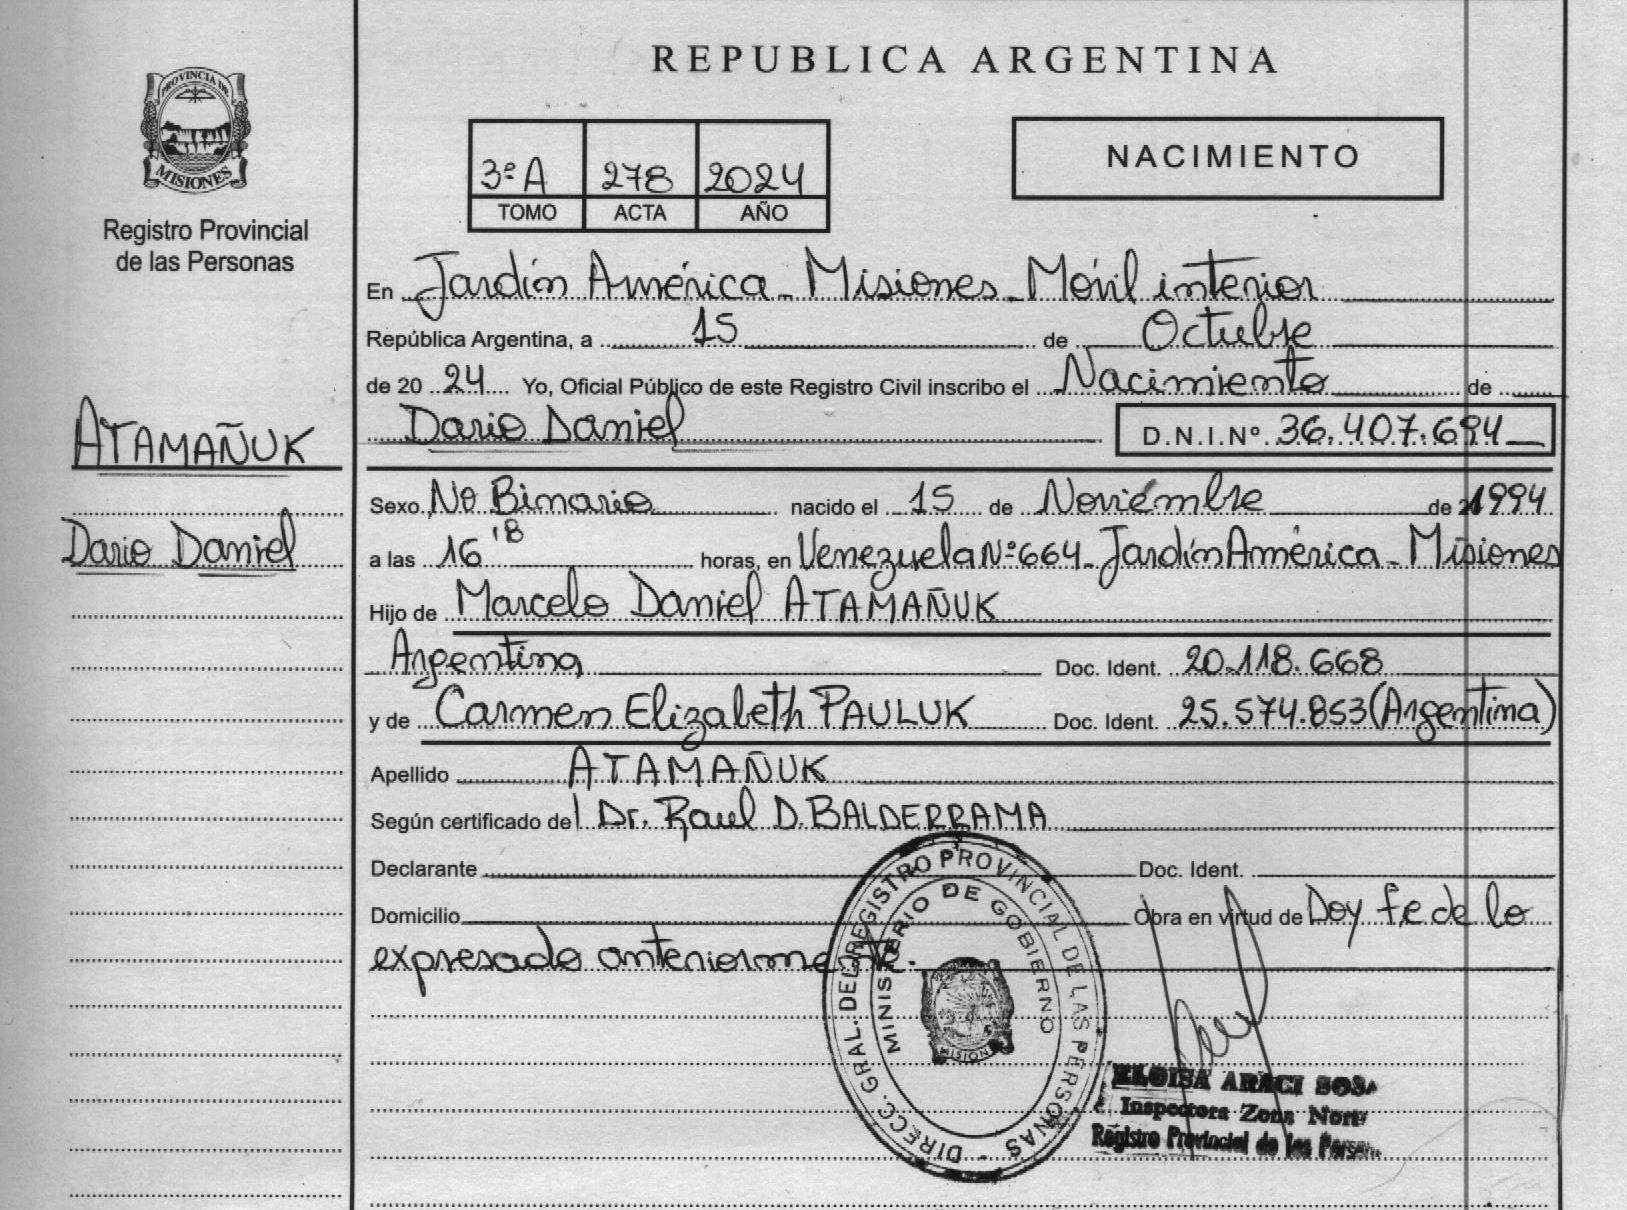 REPUBLICA ARGENTINA
PROVINCIA DE
MISIONES
Registro Provincial
de las Personas
3º A 278 2024
TOMO ACTA AÑO
NACIMIENTO
En Jardín América - Misiones - Móvil interior
República Argentina, a 15 de Octubre
de 20 24 Yo, Oficial Público de este Registro Civil inscribo el Nacimiento de
Dario Daniel D.N.I.Nº 36.407.694
ATAMAÑUK
Dario Daniel
Sexo No Binario nacido el 15 de Noviembre de 1994
a las 16'18 horas, en Venezuela Nº 664 - Jardín América - Misiones
Hijo de Marcelo Daniel ATAMAÑUK
Argentina, Doc. Ident. 20.118.668
y de Carmen Elizabeth PAULUK Doc. Ident. 25.574.853 (Argentina)
Apellido ATAMAÑUK
Según certificado de Dr. Raul D. BALDERRAMA
Declarante Doc. Ident.
Domicilio Obra en virtud de Doy fe de lo
expresado anteriormente.
DIRECC. GRAL. DEL REGISTRO PROVINCIAL DE LAS PERSONAS -
MINISTERIO DE GOBIERNO
MISIONES
ELOISA ARACI SOSA
Inspectora Zona Norte
Registro Provincial de las Personas